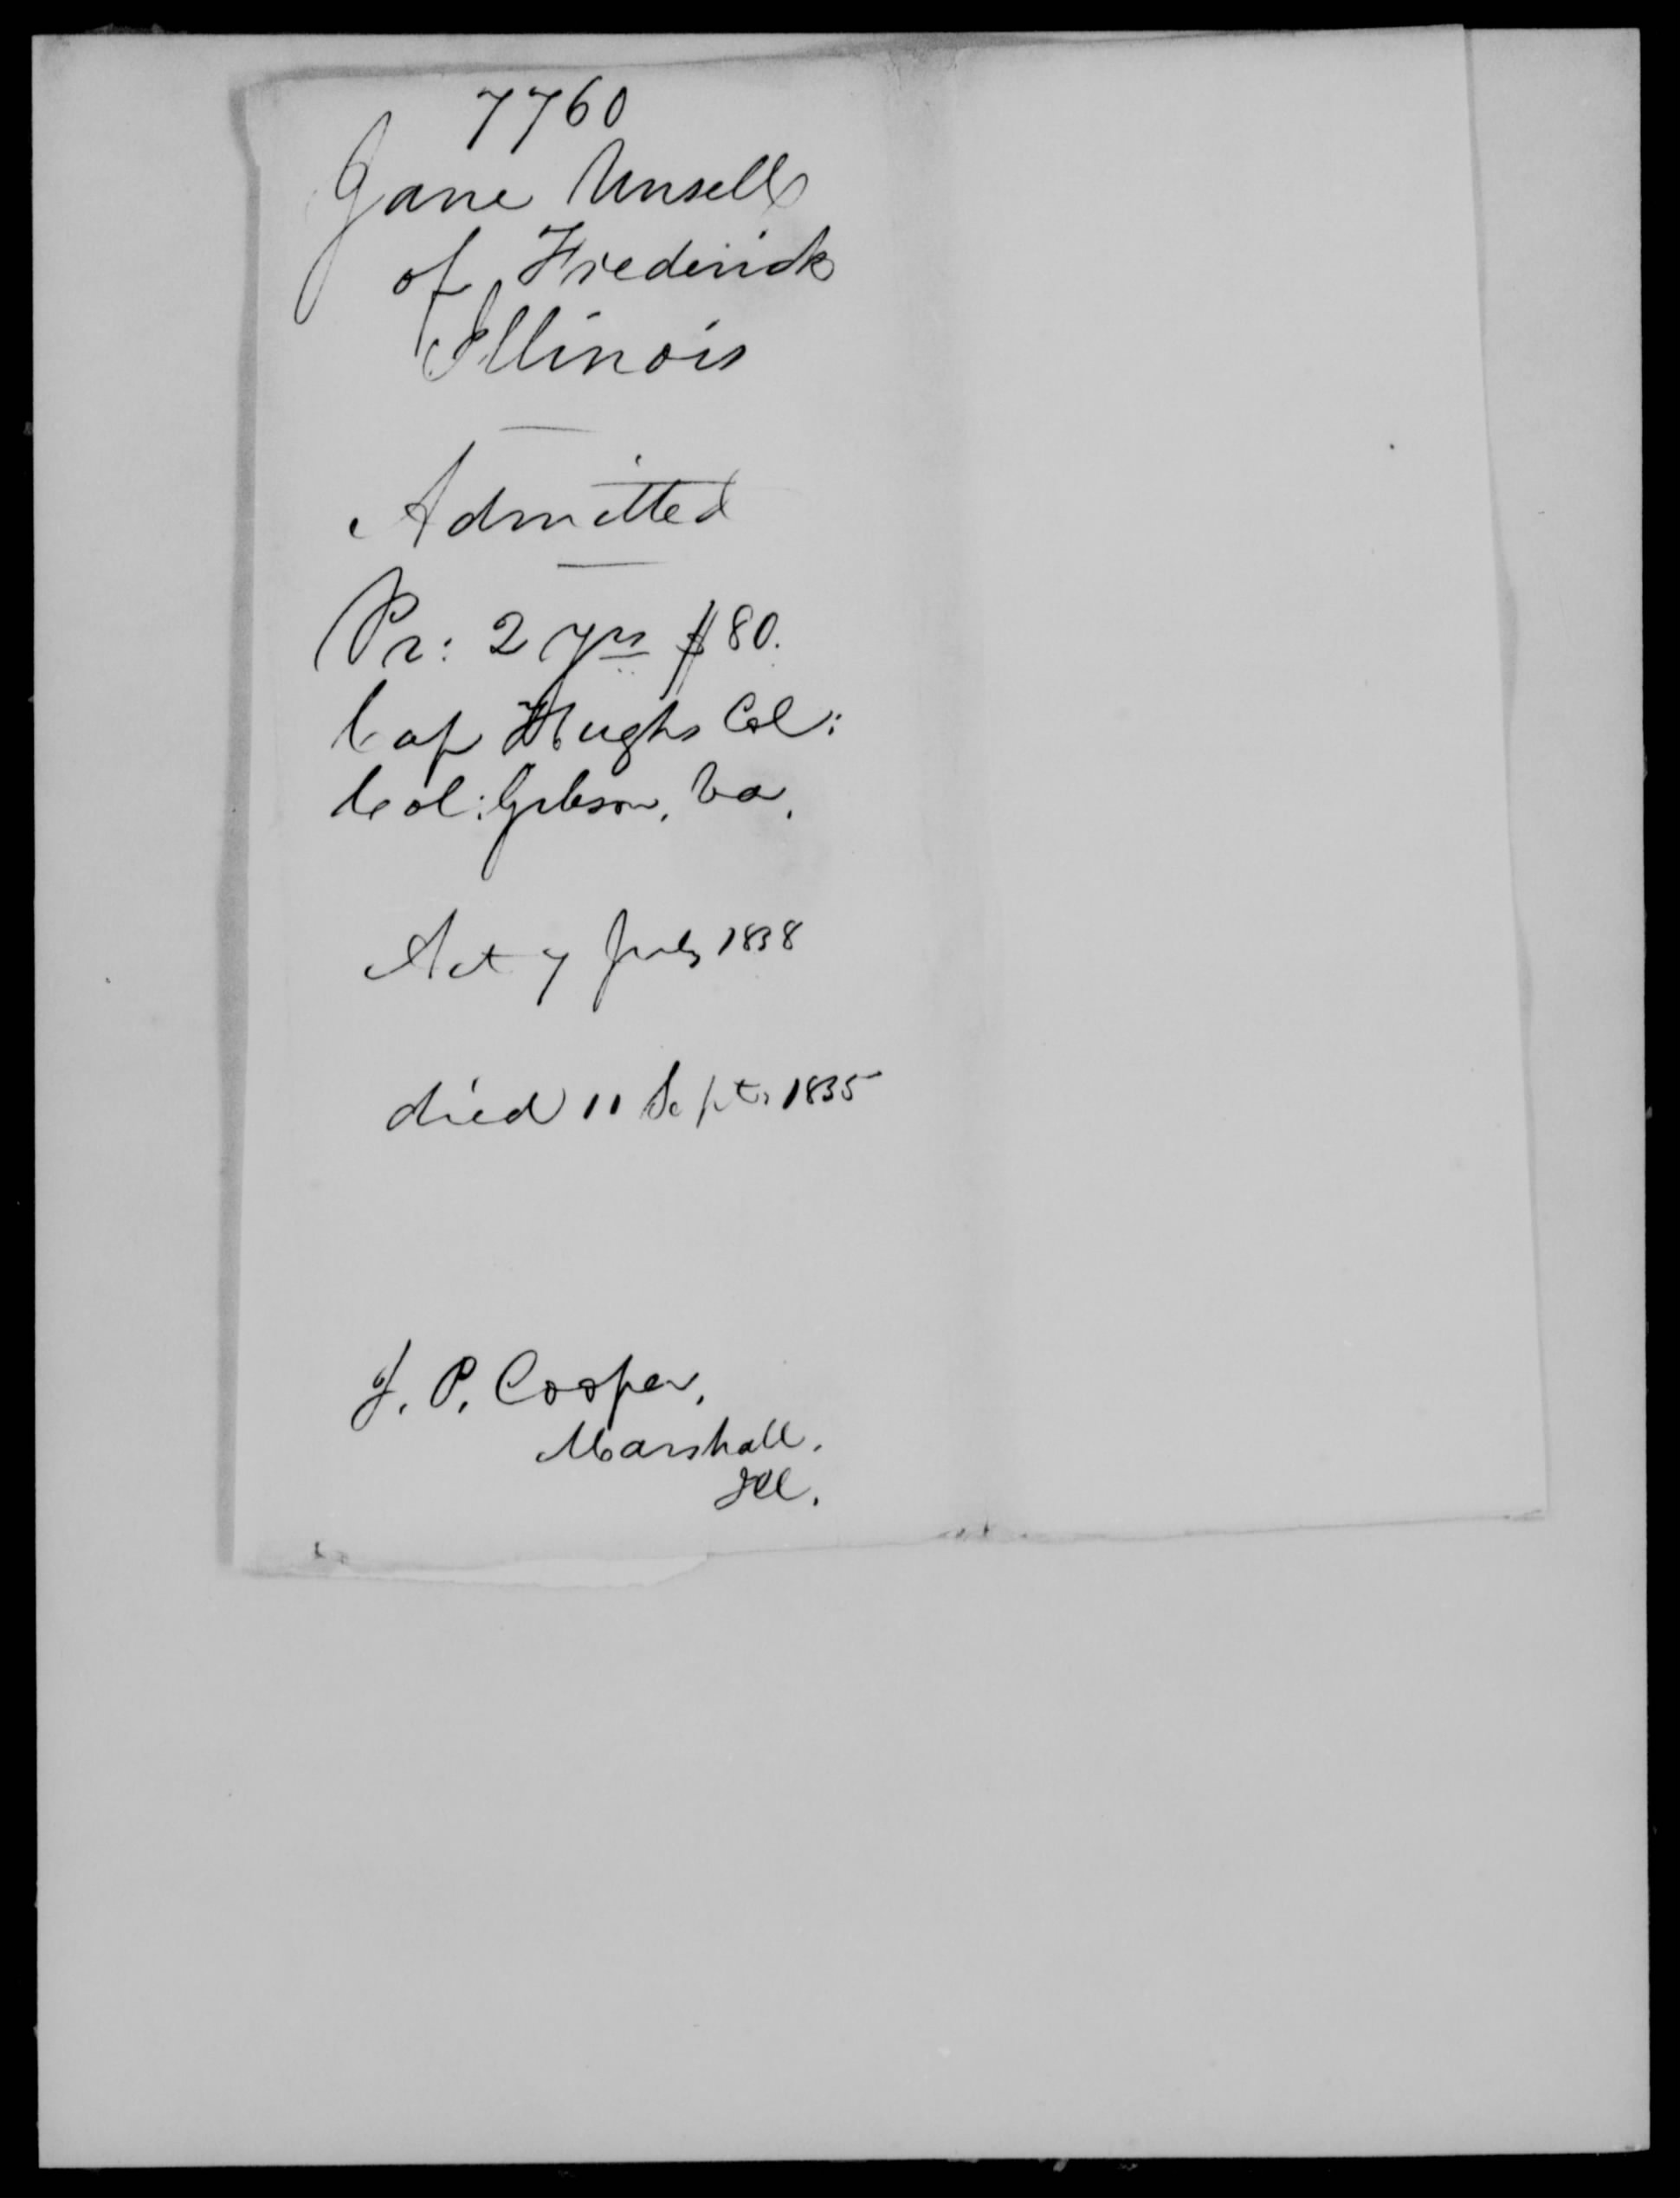 7760
Jane Unsell
of Frederick
Illinois
Admitted
Pr: 2 yrs $80.
Cap Hughs Col:
Col: Gibson, Va.
Act 7 July 1838
died 11 Sept. 1835
J. P. Cooper,
Marshall.
Ill.